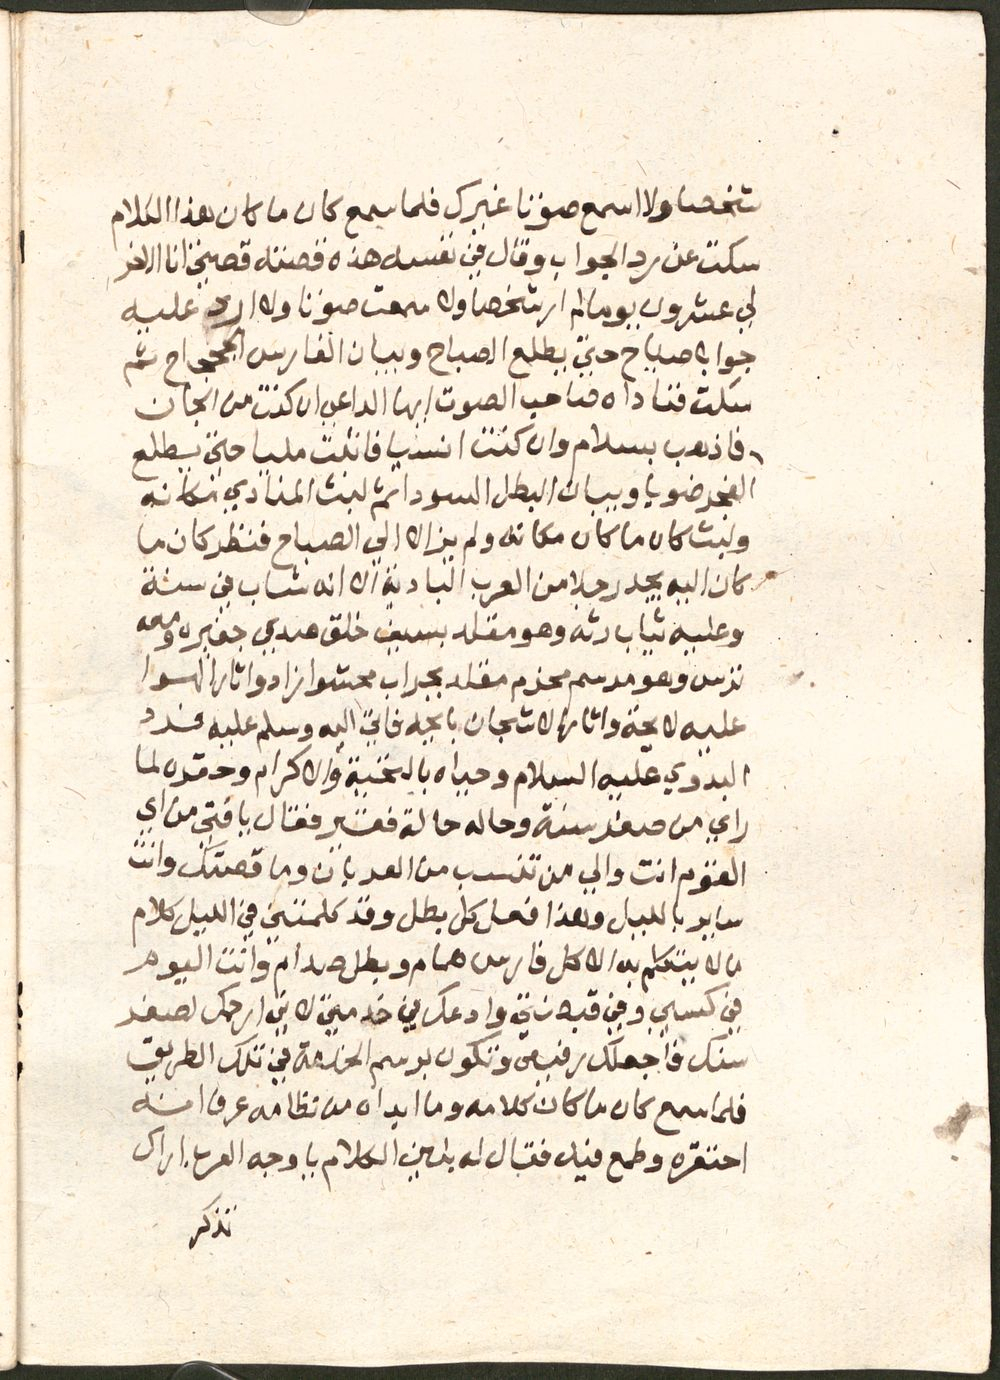 شخصا ولا اسمع صوتا غيرك فلما سمع كان ما كان هذا الكلام
سكت عن رد الجواب وقال في نفسه هذه قصته قصتي انا الاخر
لي عشرون يوما لم ار شخصا ولا سمعت صوتا ولا ارد عليه
جوابا صباح حتي يطلع الصباح ويبان الفارس الجحجاح ثم
سكت فناداه صاحب الصوت ايها الداعي ان كنت من الجان
فاذهب بسلام وان كنت انسيا فاثبت مليا حتي يطلع
الفجر ضويا ويبان البطل السودا ثم لبث المنادي مكانه
ولبث كان ما كان مكانه ولم يزالا الي الصباح فنظر كان ما
كان اليه يجد رجلا من العرب البادية الا انه شاب في سنة
وعليه ثياب رثه وهو مقلد بسيف خلق صدي جفيره ومعه
ترس وهو مدسم محزم مقلد بجراب محشوا زاد واثار الهوا
عليه لايحة واثارها لاشجان بايحه فاتي اليه وسلم عليه فرد
البدوي عليه السلام وحياه بالتحية والاكرام وحقره لما
راي من صغر سنة وحاله حالة فقير فقال يا فتي من اي
القوم انت والي من تنسب من العربان وما قصتك وانت
ساير بالليل وهذا فعل كل بطل وقد كلمتني في الليل كلام
ما لا يتكلم به الا كل فارس همام وبطل صدام وانت اليوم
في كسبي وفي قبضتي وادعك في خدمتي لاني ارحمك لصغر
سنك فاجعلك رفيقي وتكون برسم الخدمة في تلك الطريق
فلما سمع كان ما كان كلامه وما ابداه من نظامه عرف انه
احتقره وطمع فيه فقال له بلين الكلام يا وجه العرب اراك
تذكر